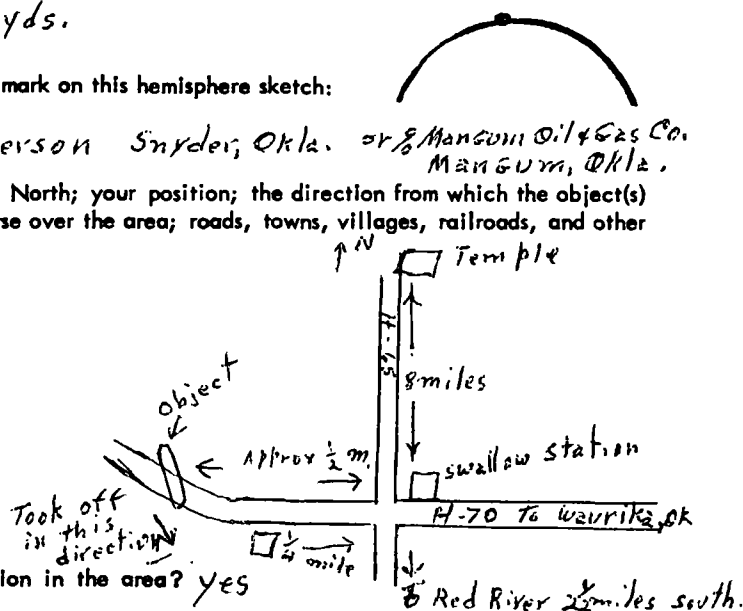 yds.
mark on this hemisphere sketch:
erson Snyder, Okla. or % Mangum Oil & Gas Co.
Mangum, Okla.
North; your position; the direction from which the object(s)
se over the area; roads, towns, villages, railroads, and other
↑ N
Temple
H-65
8 miles
object
← Approx ½ m. →
swallow station
Took off
in this
direction
H-70 To Waurika, ok
¼ mile →
ion in the area? yes
to Red River miles south.